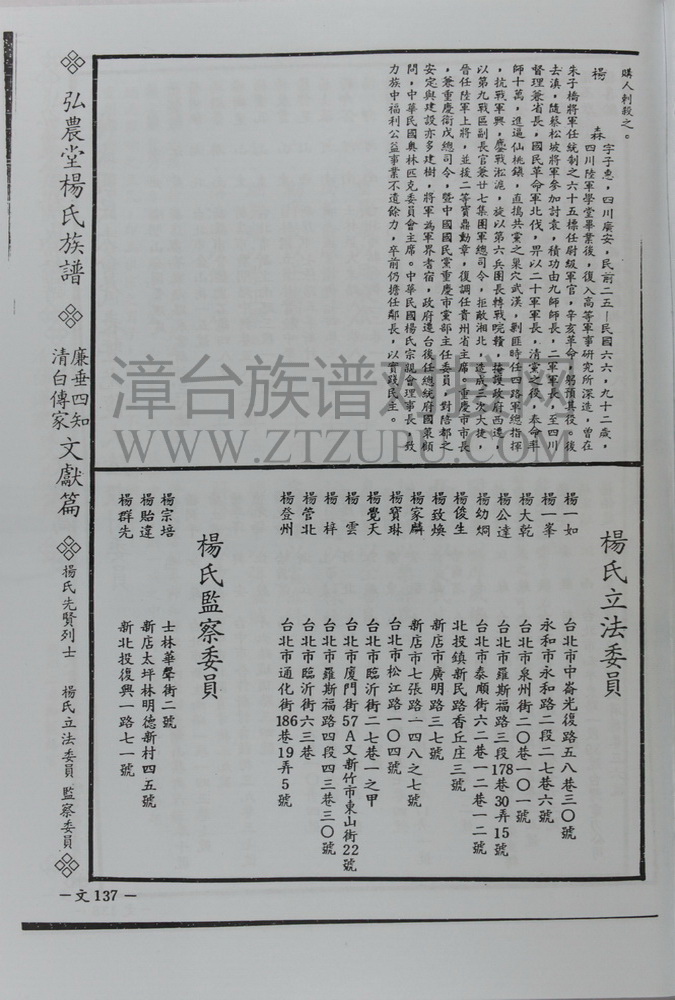 購人刺殺之。
楊　森　字子惠，四川廣安，民前二五—民國六六，九十二歲，
四川陸軍學堂畢業後，復入高等軍事研究所深造，曾在
朱子橋將軍任統制之六十五標任尉級軍官，辛亥革命，躬預其役。後
去滇，隨蔡松坡將軍參加討袁，積功由九師師長，二軍軍長，至四川
督理兼省長，國民革命軍北伐，畀以二十軍軍長，清黨之後，奉命率
師十萬，進逼仙桃鎮，直搗共黨之巢穴武漢，剿匪時任四路軍總指揮
，抗戰軍興，鏖戰淞滬，旋以第六兵團長轉戰皖贛，掩護政府西遷，
以第九戰區副長官兼廿七集團軍總司令，拒敵湘北，造成三次大捷，
晉任陸軍上將，並拔二等寶鼎勳章，復調任貴州省主席。重慶市市長
，兼重慶衛戍總司令，暨中國國民黨重慶市黨部主任委員，對陪都之
安定與建設亦多建樹，將軍為軍界耆宿，政府遷台後任總統府國策顧
問，中華民國奧林匹克委員會主席。中華民國楊氏宗親會理事長，致
力族中福利公益事業不遺餘力，卒前仍擔任鄰長，以實踐民主。
楊氏立法委員
楊一如　台北市中崙光復路五八巷三〇號
楊一峯　永和市永和路二段二七巷六號
楊大乾　台北市泉州街二〇巷一〇一號
楊公達　台北市羅斯福路三段178巷30弄15號
楊幼炯　台北市泰順街六二巷一二巷一二號
楊俊生　北投鎮新民路香丘庄三號
楊致煥　新店市廣明路三七號
楊家麟　新店市七張路一四八之七號
楊寶琳　台北市松江路一〇四號
楊覺天　台北市臨沂街二七巷一之甲
楊　雲　台北市廈門街57A又新竹市東山街22號
楊　梓　台北市羅斯福路四段四三巷三〇號
楊管北　台北市臨沂街六三巷
楊登州　台北市通化街186巷19弄5號
楊氏監察委員
楊宗培　士林華聲街二號
楊貽達　新店太坪林明德新村四五號
楊群先　新北投復興一路七一號
弘農堂楊氏族譜
廉垂四知
清白傳家
文獻篇
楊氏先賢列士　楊氏立法委員　監察委員
—文137—
漳台族谱对接网
WWW.ZTZUPU.COM